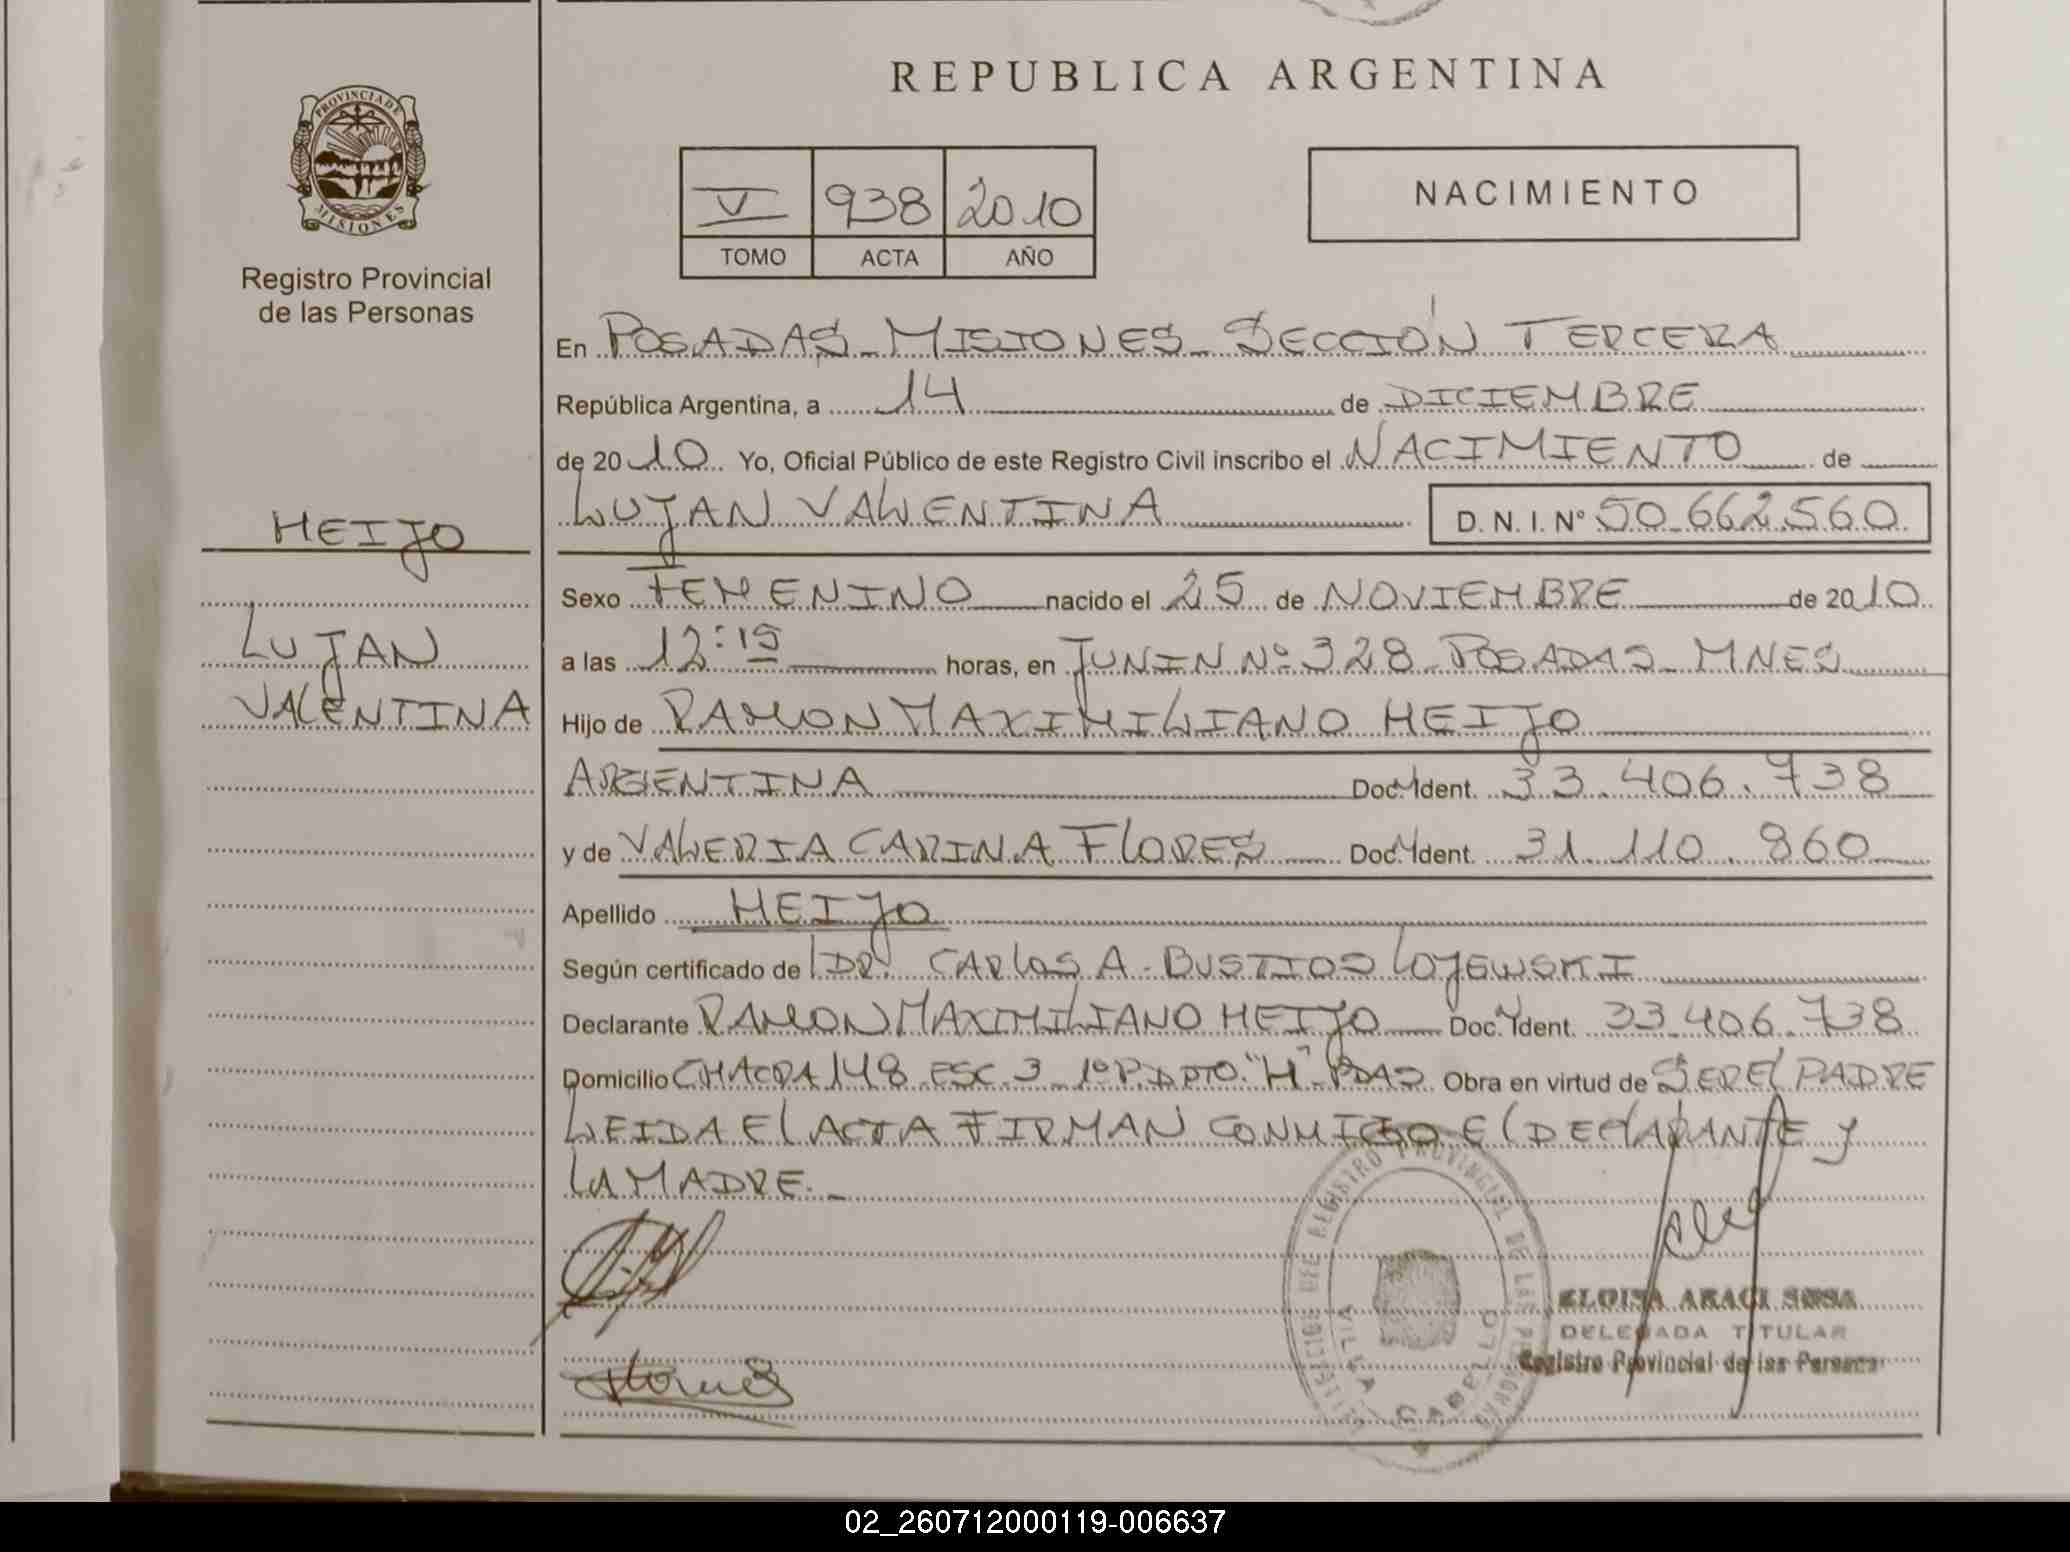 REPUBLICA ARGENTINA
PROVINCIA DE MISIONES
Registro Provincial
de las Personas
V 938 2010
TOMO ACTA AÑO
NACIMIENTO
En POSADAS - MISIONES - SECCIÓN TERCERA
República Argentina, a 14 de DICIEMBRE
de 2010 Yo, Oficial Público de este Registro Civil inscribo el NACIMIENTO de
LUJAN VALENTINA D.N.I. Nº 50.662.560
HEIJO
LUJAN
VALENTINA
Sexo FEMENINO nacido el 25 de NOVIEMBRE de 2010
a las 12:15 horas, en JUNIN Nº 328 - POSADAS - MNES
Hijo de RAMON MAXIMILIANO HEIJO
ARGENTINA Doc. Ident. 33.406.738
y de VALERIA CARINA FLORES Doc. Ident. 31.110.860
Apellido HEIJO
Según certificado de DR. CARLOS A. BUSTIOS LOJEWSKI
Declarante RAMON MAXIMILIANO HEIJO Doc. Ident. 33.406.738
Domicilio CHACRA 148 ESC. 3 1º P. DPTO. "H" PDAS Obra en virtud de SER EL PADRE
LEIDA EL ACTA FIRMAN CONMIGO EL DECLARANTE Y
LA MADRE.-
REGISTRO PROVINCIAL DE LAS PERSONAS
VILLA CABELLO
ELOISA ARACI SOSA
DELEGADA TITULAR
Registro Provincial de las Personas
02_260712000119-006637